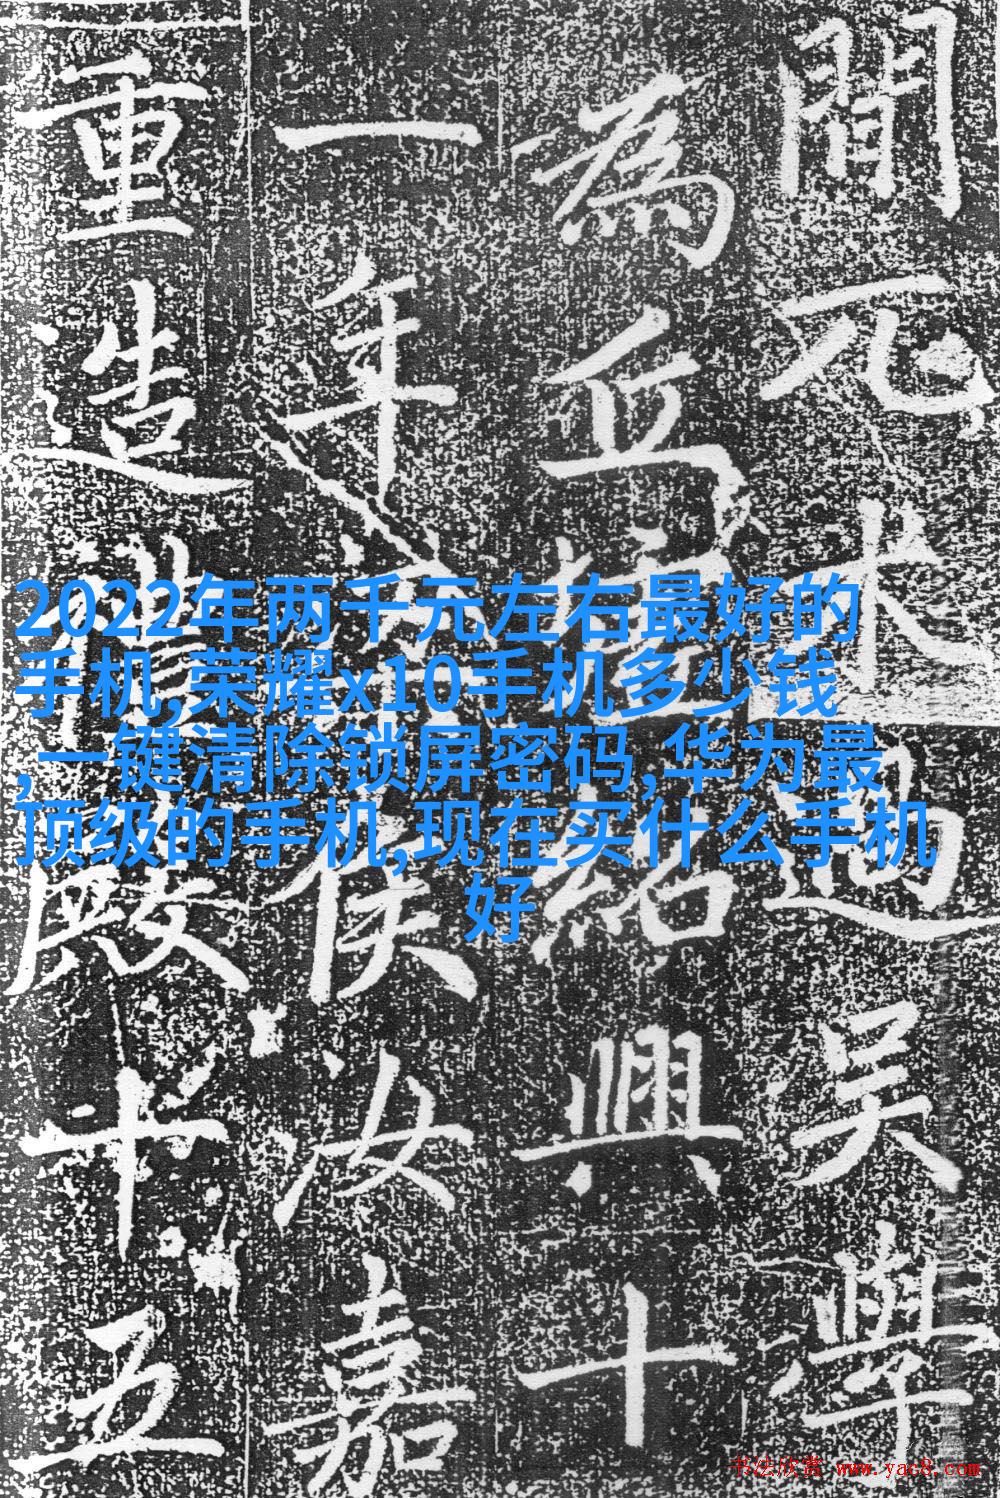 2022年两千元左右最好的
手机,荣耀x10手机多少钱
,一键清除锁屏密码,华为最
顶级的手机,现在买什么手机
好
間兀朮過吳學
為丘墟紹興十
一年侯汝嘉
重造殿十五
书法欣赏 www.yac8.com